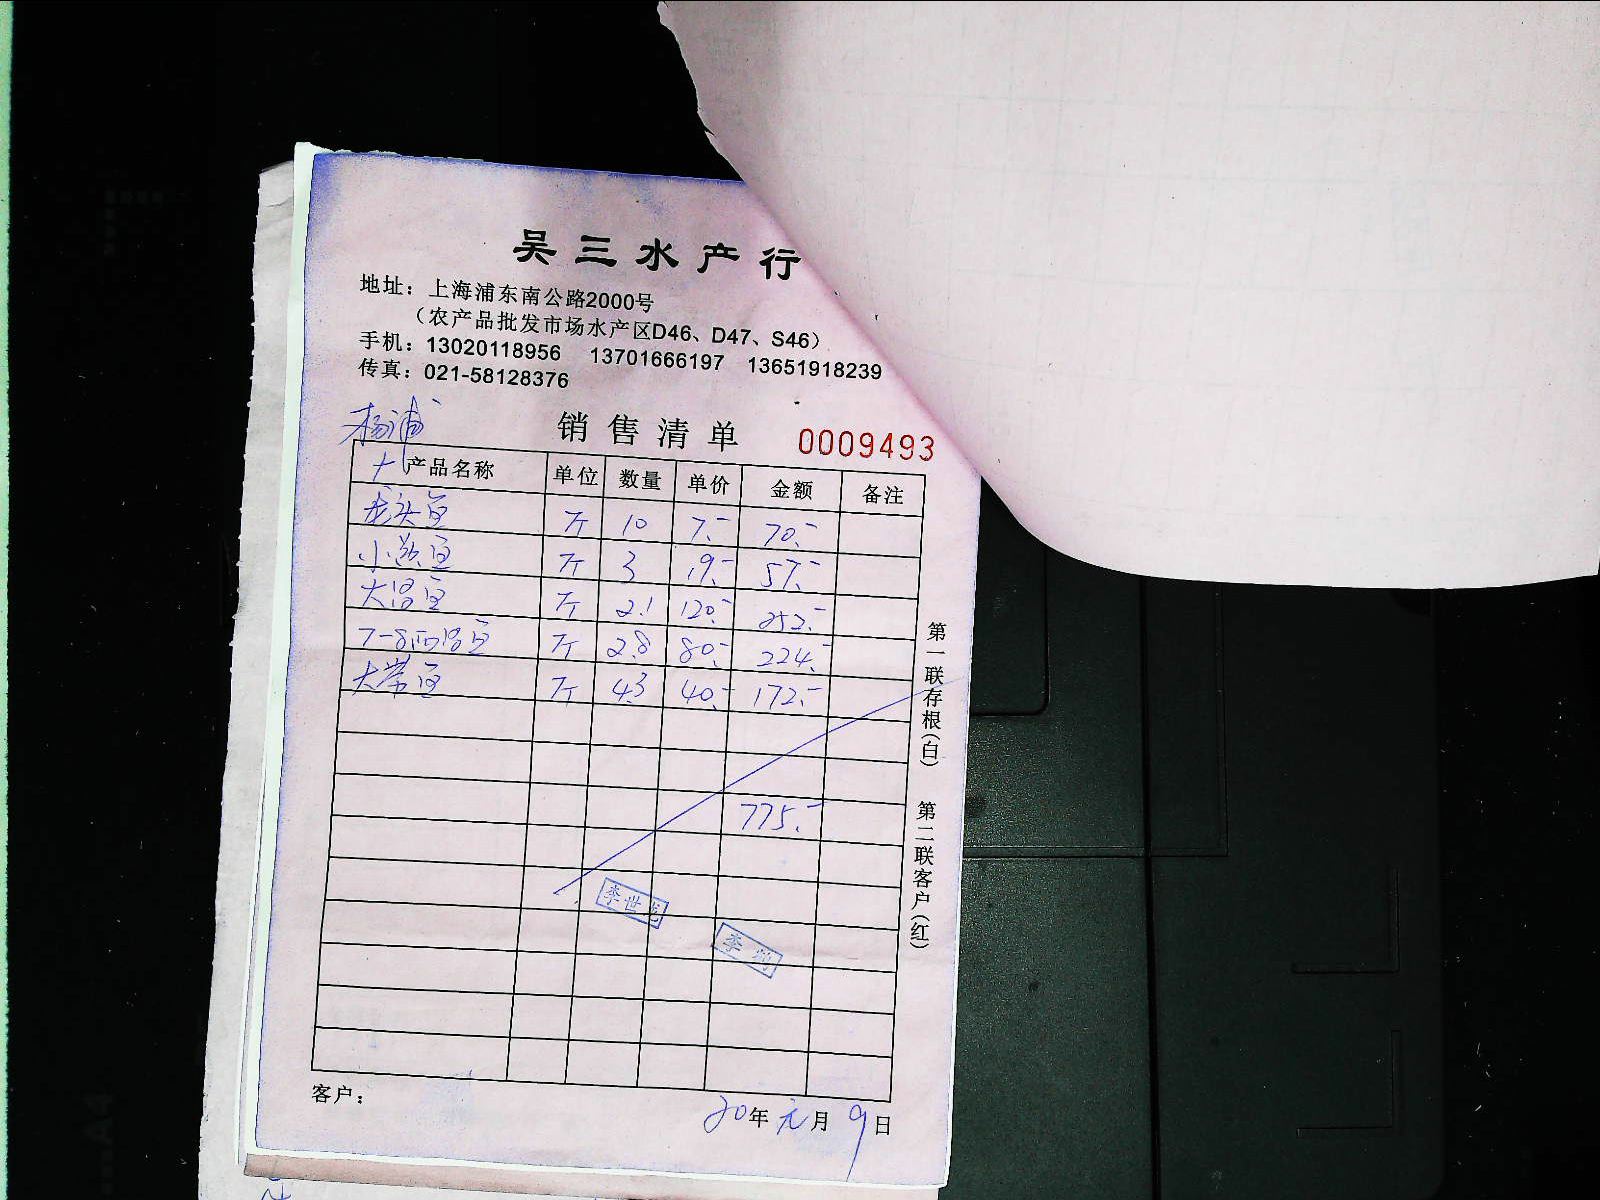 吴三水产行
地址：上海浦东南公路2000号
（农产品批发市场水产区D46、D47、S46）
手机：13020118956 13701666197 13651918239
传真：021-58128376
杨浦
销售清单 0009493
产品名称 单位 数量 单价 金额 备注
龙头鱼 斤 10 7.- 70.-
小黄鱼 斤 3 19.- 57.-
大鱼 斤 2.1 120.- 252.-
7-8两鱼 斤 2.8 80.- 224.-
大带鱼 斤 4.3 40.- 172.-
775.-
李世
李
第一联存根(白) 第二联客户(红)
客户：
20年元月9日
A4